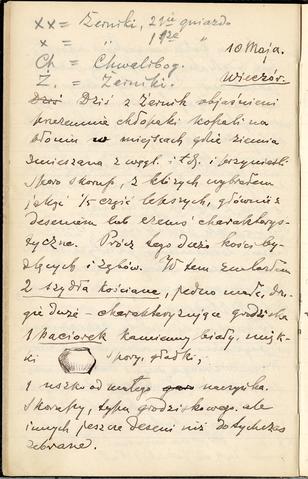 xx = Żerniki, 21sze gniazdo
x = " 1sze "
Ch = Chwalibog.
Ż. = Żerniki.
10 Maja.
Wieczór.
Dziś Dziś z Żernik objaśnieni
przezemnie chłopaki kopali na
błoniu w miejscach gdzie ziemia
zmieszana z węgl. i t.d. i przynieśli
sporo skorup, z których wybrałem
jakąś 1/5 część lepszych, głównie z
deseniem lub czemś charakterys-
tyczne. Prócz tego dużo kości by-
dlęcych i zębów. W tem znalazłem
2 szydła kościane, jedno małe, dru-
gie duże - charakteryzujące grodziska
1 paciorek kamienny biały, mięk-
ki spory, gładki;
1 uszko od małego naczyńka.
Skorupy, typu grodziskowego, ale
innych jeszcze deseni niż dotychczas
zebrane.